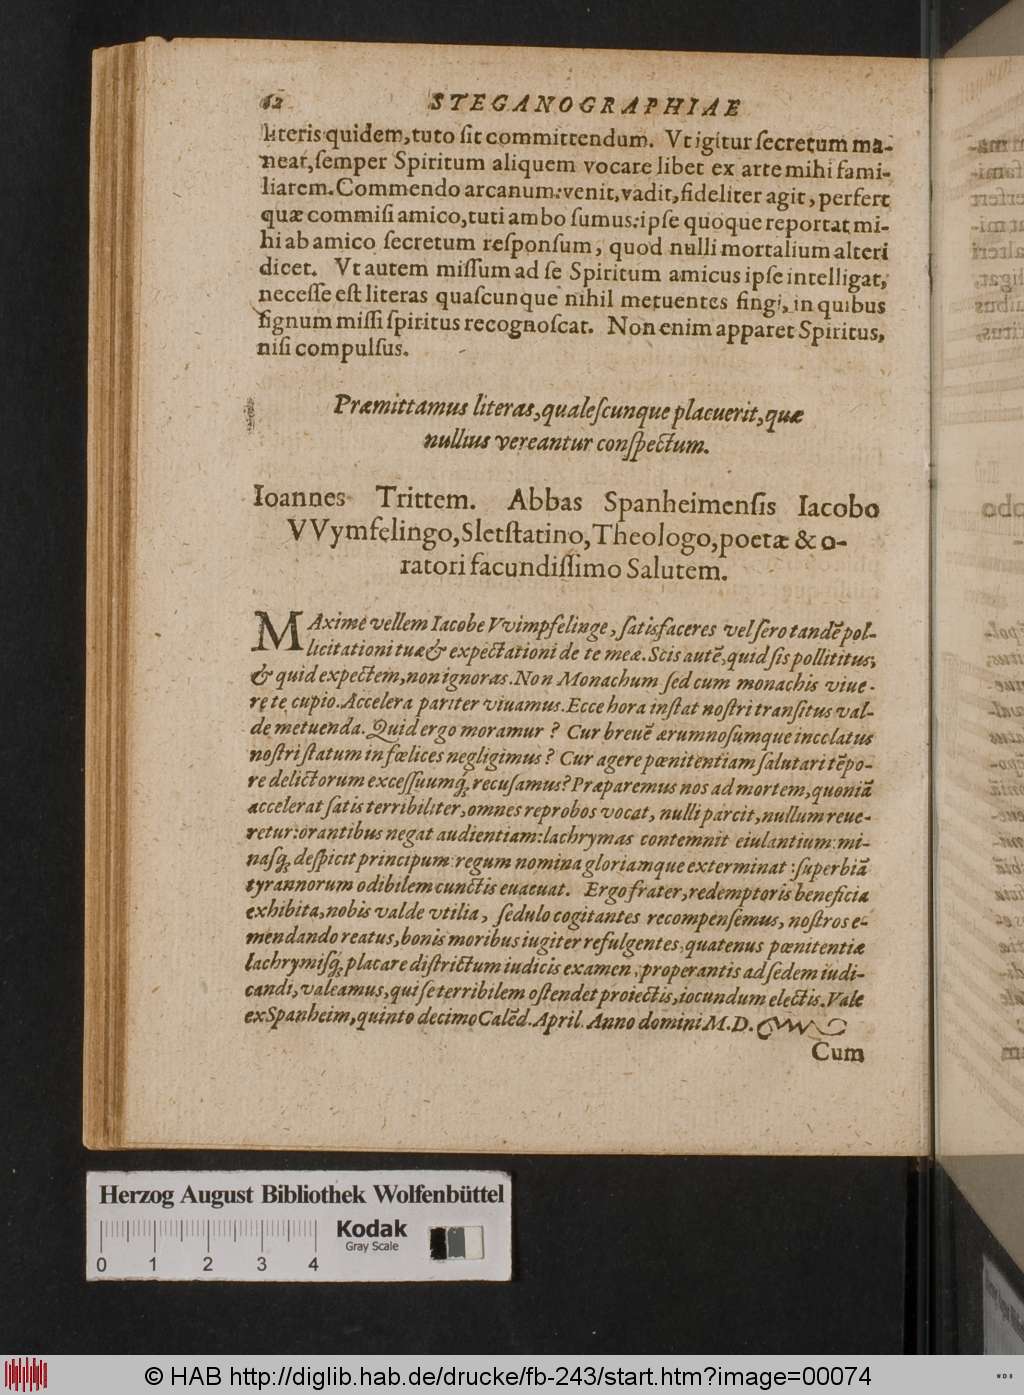 62 STEGANOGRAPHIAE
literis quidem, tuto sit committendum. Vt igitur secretum ma-
neat, semper Spiritum aliquem vocare libet ex arte mihi fami-
liarem. Commendo arcanum: venit, vadit, fideliter agit, perfert
quæ commisi amico, tuti ambo sumus: ipse quoque reportat mi-
hi ab amico secretum responsum, quod nulli mortalium alteri
dicet. Vt autem missum ad se Spiritum amicus ipse intelligat,
necesse est literas quascunque nihil metuentes fingi, in quibus
signum missi spiritus recognoscat. Non enim apparet Spiritus,
nisi compulsus.
Præmittamus literas, qualescunque placuerit, quæ
nullius vereantur conspectum.
Ioannes Trittem. Abbas Spanheimensis Iacobo
VVymfelingo, Sletstatino, Theologo, poetæ & o-
ratori facundissimo Salutem.
MAxime vellem Iacobe Vvimpfelinge, satisfaceres vel sero tandē pol-
licitationi tuæ & expectationi de te meæ. Scis autē, quid sis pollititus,
& quid expectem, non ignoras. Non Monachum sed cum monachis viue-
re te cupio. Accelera pariter viuamus. Ecce hora instat nostri transitus val-
de metuenda. Quid ergo moramur? Cur breuē ærumnosumque incolatus
nostri statum infœlices negligimus? Cur agere pœnitentiam salutari tēpo-
re delictorum excessuumq; recusamus? Præparemus nos ad mortem, quoniā
accelerat satis terribiliter, omnes reprobos vocat, nulli parcit, nullum reue-
retur: orantibus negat audientiam: lachrymas contemnit eiulantium: mi-
nasq; despicit principum: regum nomina gloriamque exterminat: superbiā
tyrannorum odibilem cunctis euacuat. Ergo frater, redemptoris beneficia
exhibita, nobis valde vtilia, sedulo cogitantes recompensemus, nostros e-
mendando reatus, bonis moribus iugiter refulgentes, quatenus pœnitentiæ
lachrymisq; placare districtum iudicis examen, properantis ad sedem iudi-
candi, valeamus, qui se terribilem ostendet proiectis, iocundum electis. Vale
ex Spanheim, quinto decimo Calēd. April. Anno domini M.D.
Cum
Herzog August Bibliothek Wolfenbüttel
Kodak
Gray Scale
0 1 2 3 4
© HAB http://diglib.hab.de/drucke/fb-243/start.htm?image=00074